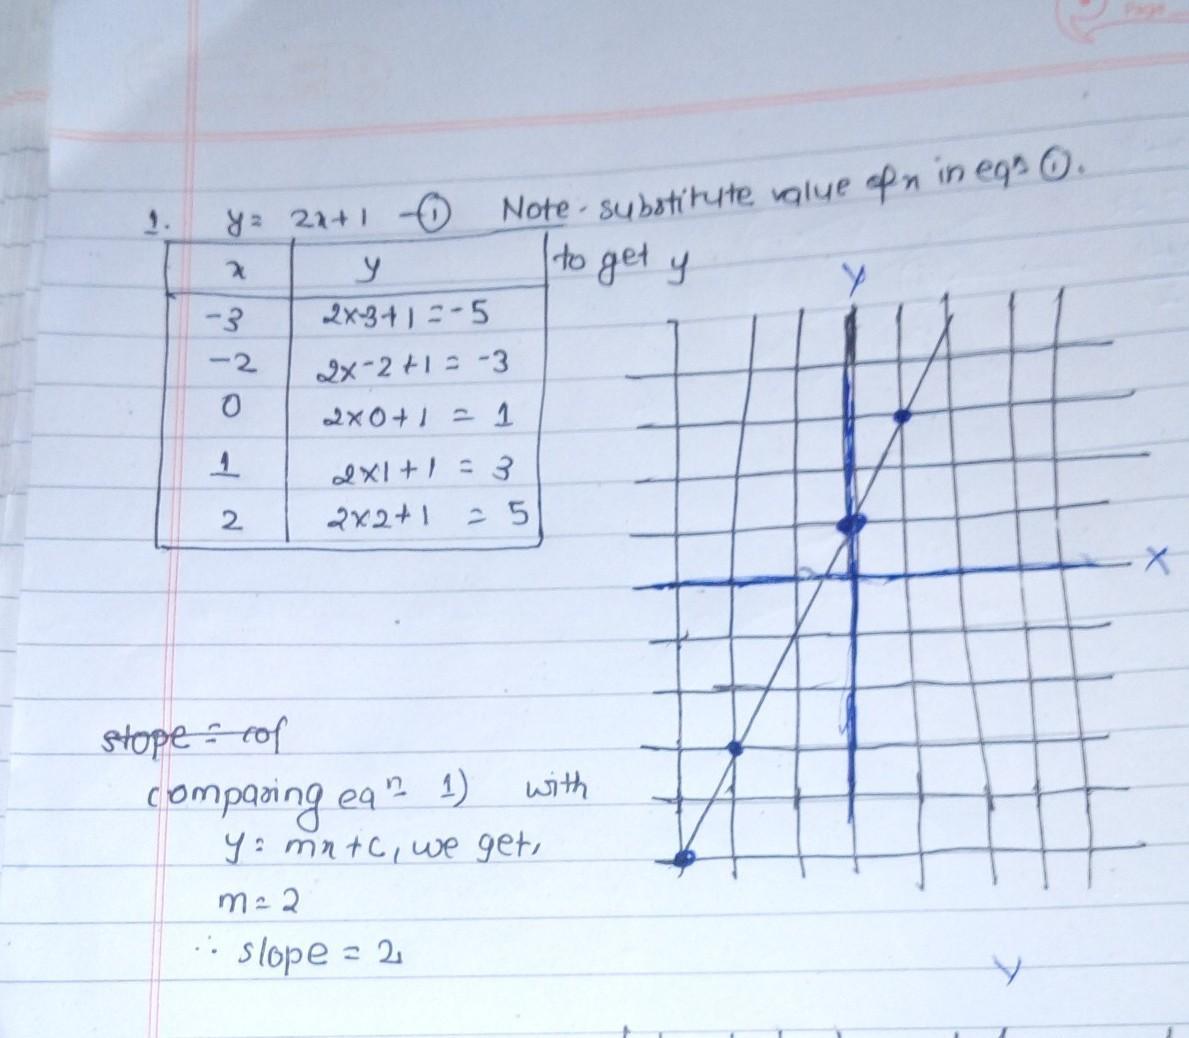 Page
1. y = 2x+1 -① Note - substitute value of x in eqn ①.
to get y
x y
-3 2x-3+1 = -5
-2 2x-2+1 = -3
0 2x0+1 = 1
1 2x1+1 = 3
2 2x2+1 = 5
Y
X
slope = cof
comparing eqn 1) with
y = mx+c, we get,
m = 2
∴ slope = 2
Y